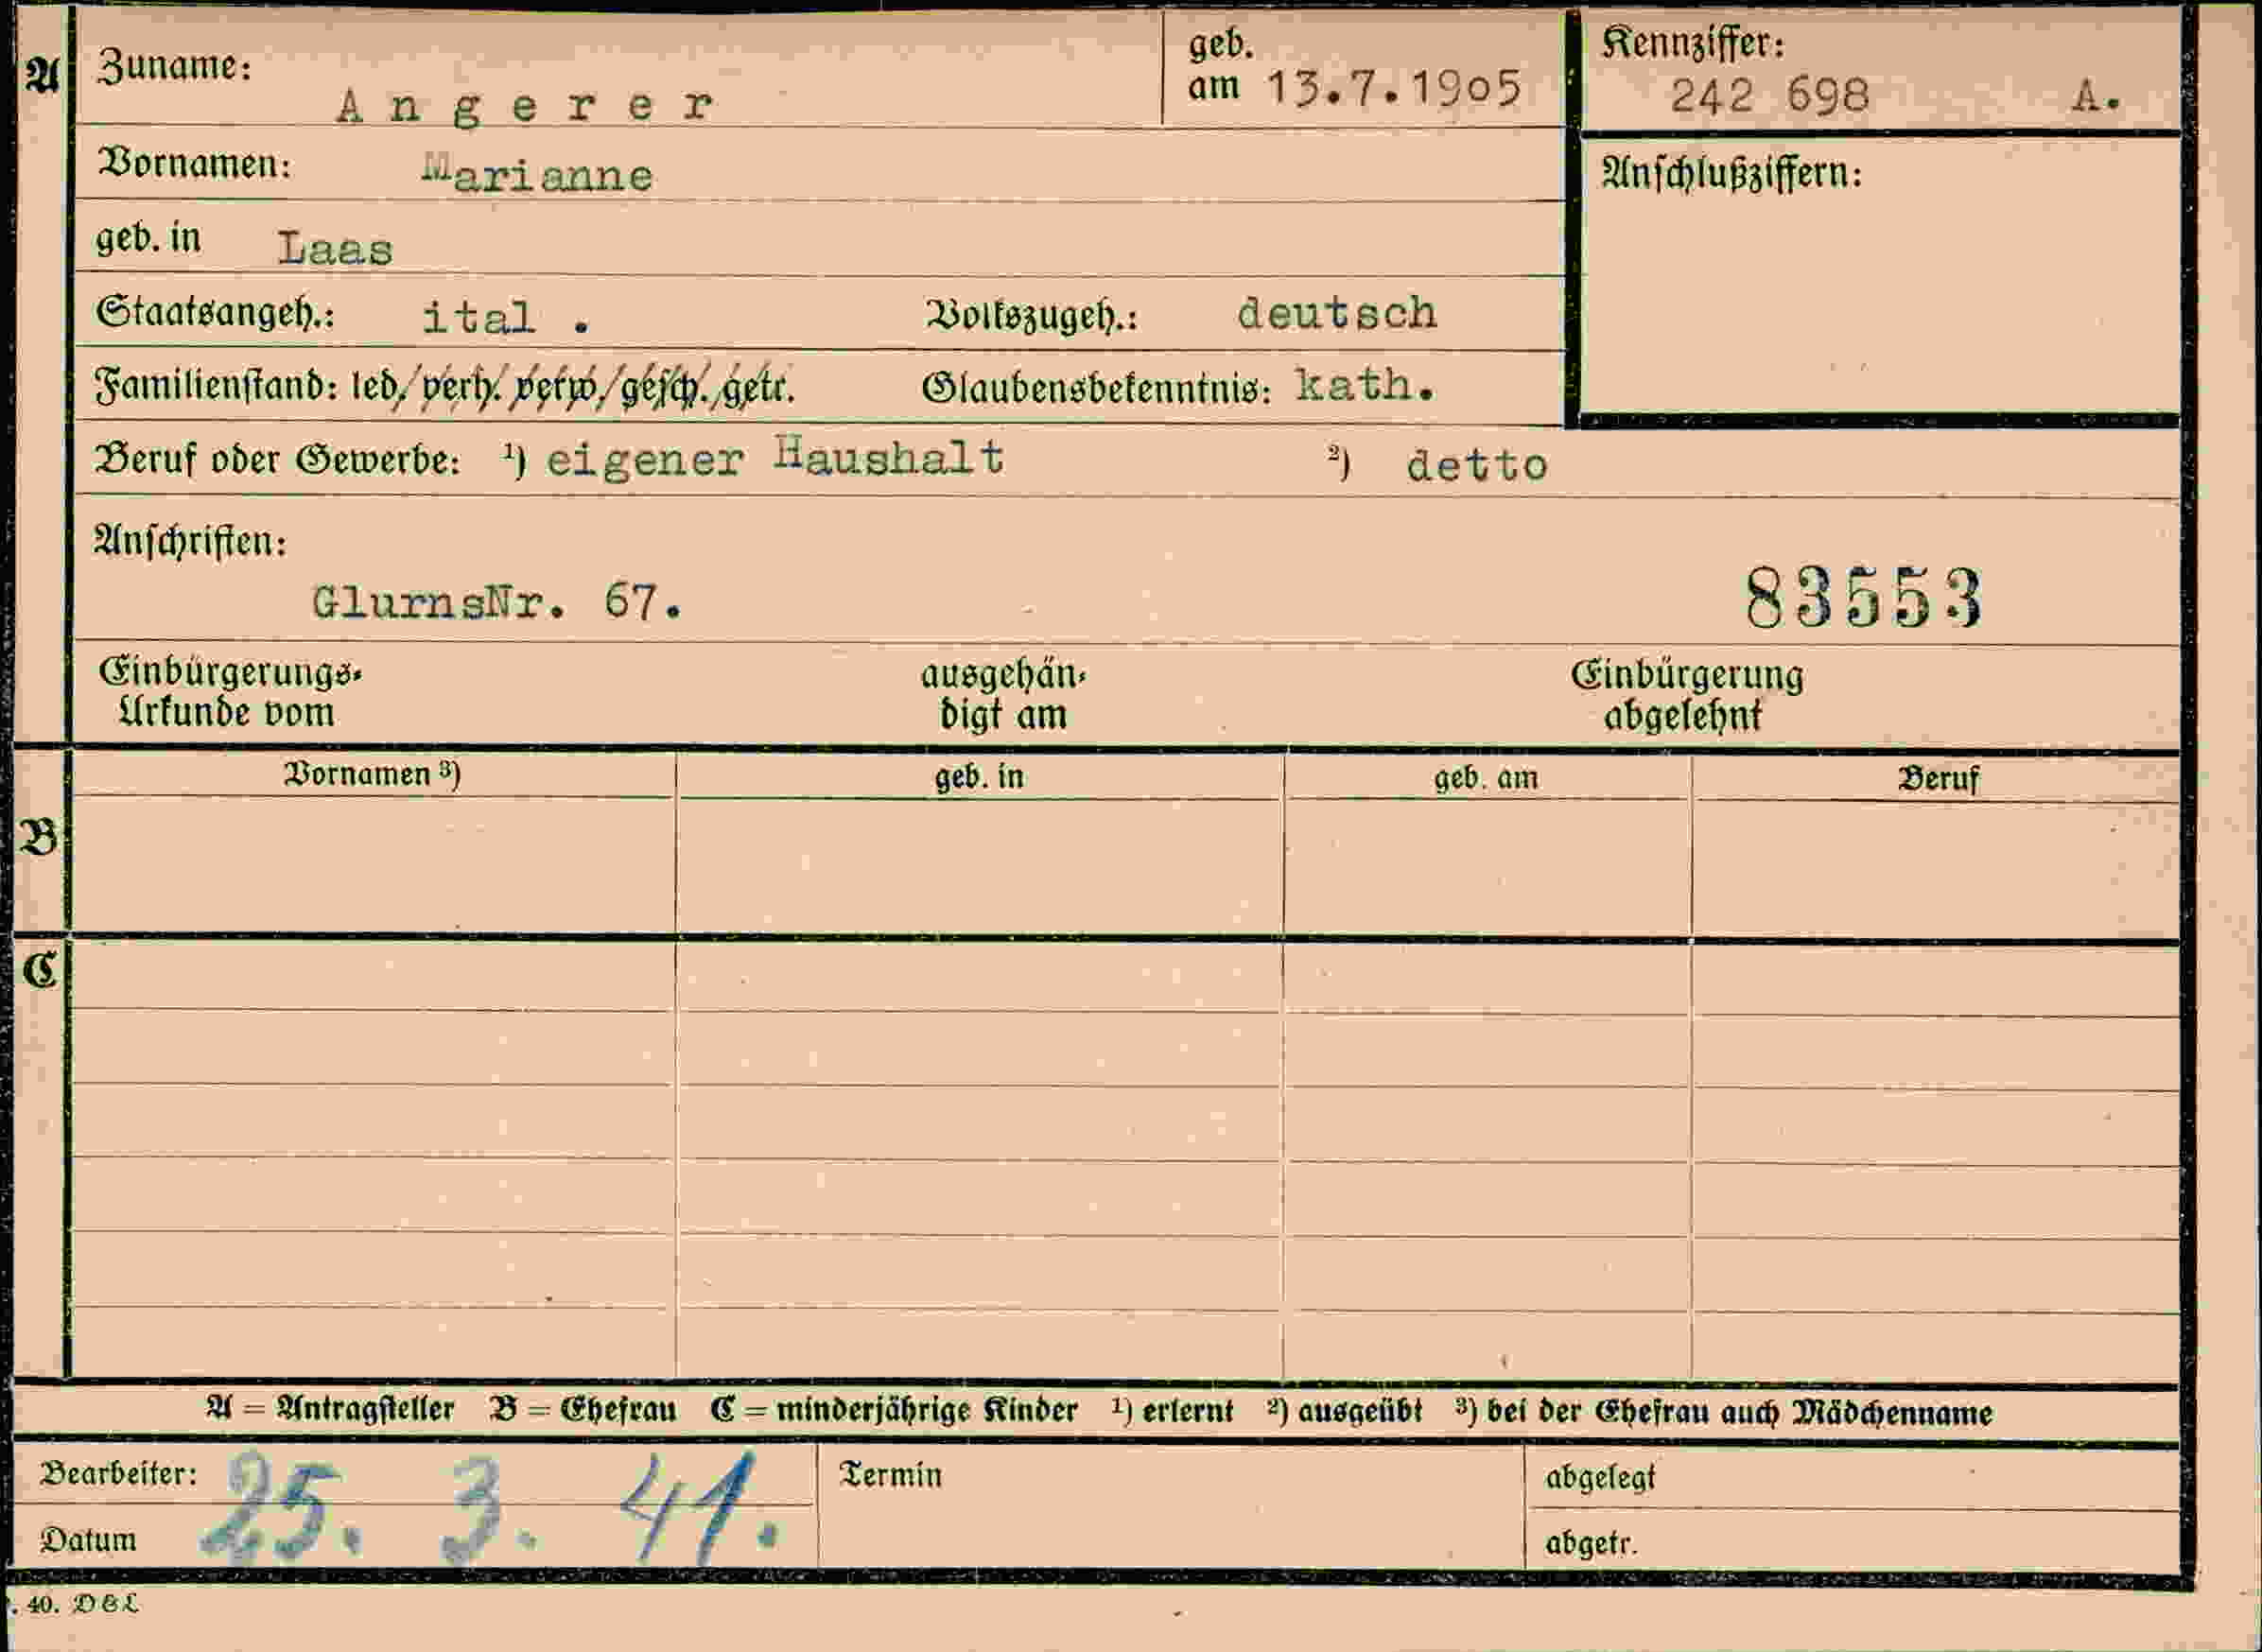 A Zuname: A n g e r e r geb. am 13.7.1905 Kennziffer: 242 698 A.
Vornamen: Marianne Anschlußziffern:
geb. in Laas
Staatsangeh.: ital . Volkszugeh.: deutsch
Familienstand: led. verh. verw. gesch. getr. Glaubensbekenntnis: kath.
Beruf oder Gewerbe: ¹) eigener Haushalt ²) detto
Anschriften:
GlurnsNr. 67. 83553
Einbürgerungs- ausgehän- Einbürgerung
Urkunde vom digt am abgelehnt
Vornamen ³) geb. in geb. am Beruf
B
C
A = Antragsteller B = Ehefrau C = minderjährige Kinder ¹) erlernt ²) ausgeübt ³) bei der Ehefrau auch Mädchenname
Bearbeiter: Termin abgelegt
25. 3. 41.
Datum abgetr.
. 40. DBL